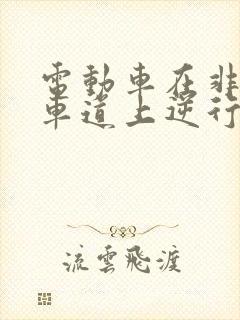 電動車在非
車道上逆行
流雲飛渡